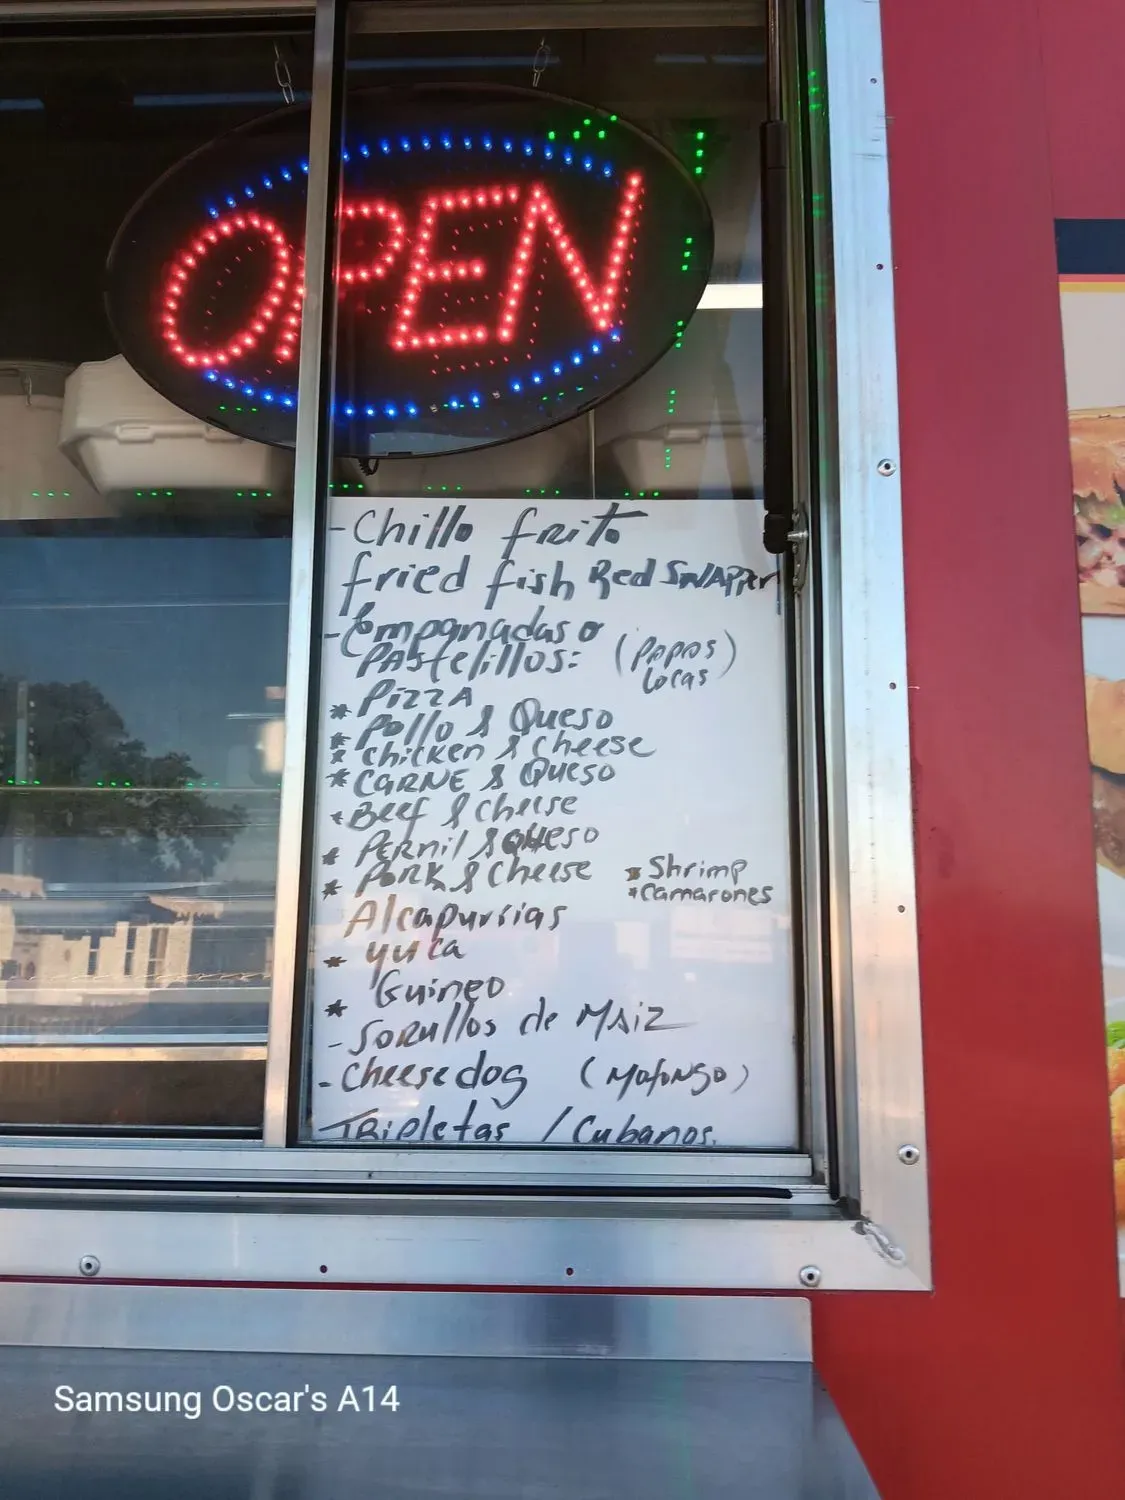 OPEN
- Chillo frito
fried fish Red SNAPPer
- Empanadas o
PAStelillos: (PAPAS)
Locas
* Pizza
* Pollo & Queso
* Chicken & Cheese
* CARNE & Queso
* Beef & Cheese
* PERnil & QUeso
* PORK & Cheese
* Shrimp
* Camarones
Alcapurrias
* yuca
* Guineo
- SORullos de MAiz
- Cheesedog (Mofongo)
TRipletas / Cubanos.
Samsung Oscar's A14